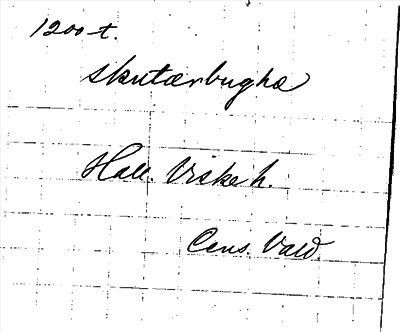 1200 t.
skutærbughæ
Hall. Viske h.
Cens. Vald.